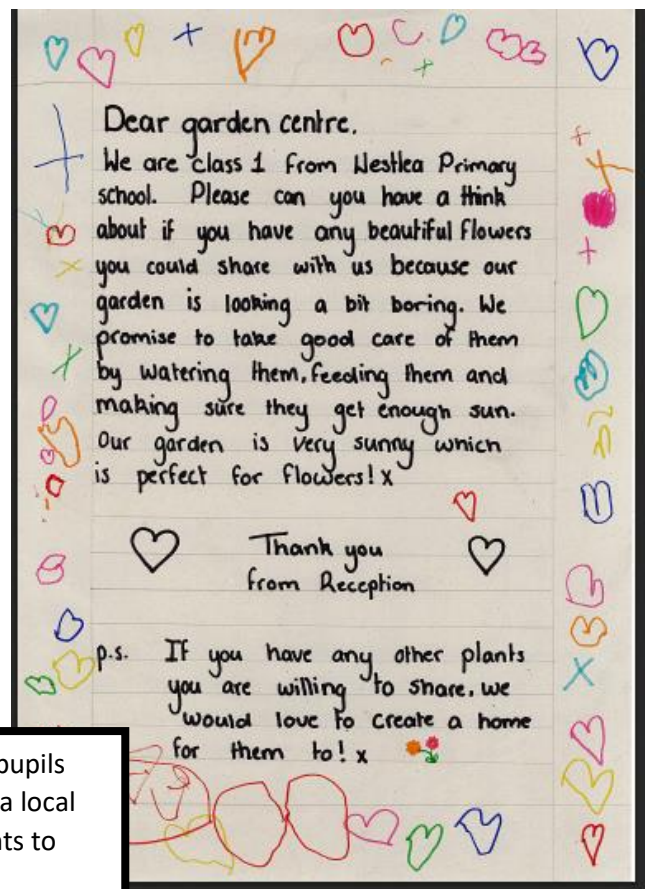 Dear garden centre.
We are class 1 from Westlea Primary
school. Please can you have a think
about if you have any beautiful flowers
you could share with us because our
garden is looking a bit boring. We
promise to take good care of them
by watering them, feeding them and
making sure they get enough sun.
Our garden is very sunny which
is perfect for flowers! x
Thank you
from Reception
p.s. If you have any other plants
you are willing to share, we
would love to create a home
for them to! x
pupils
a local
ts to